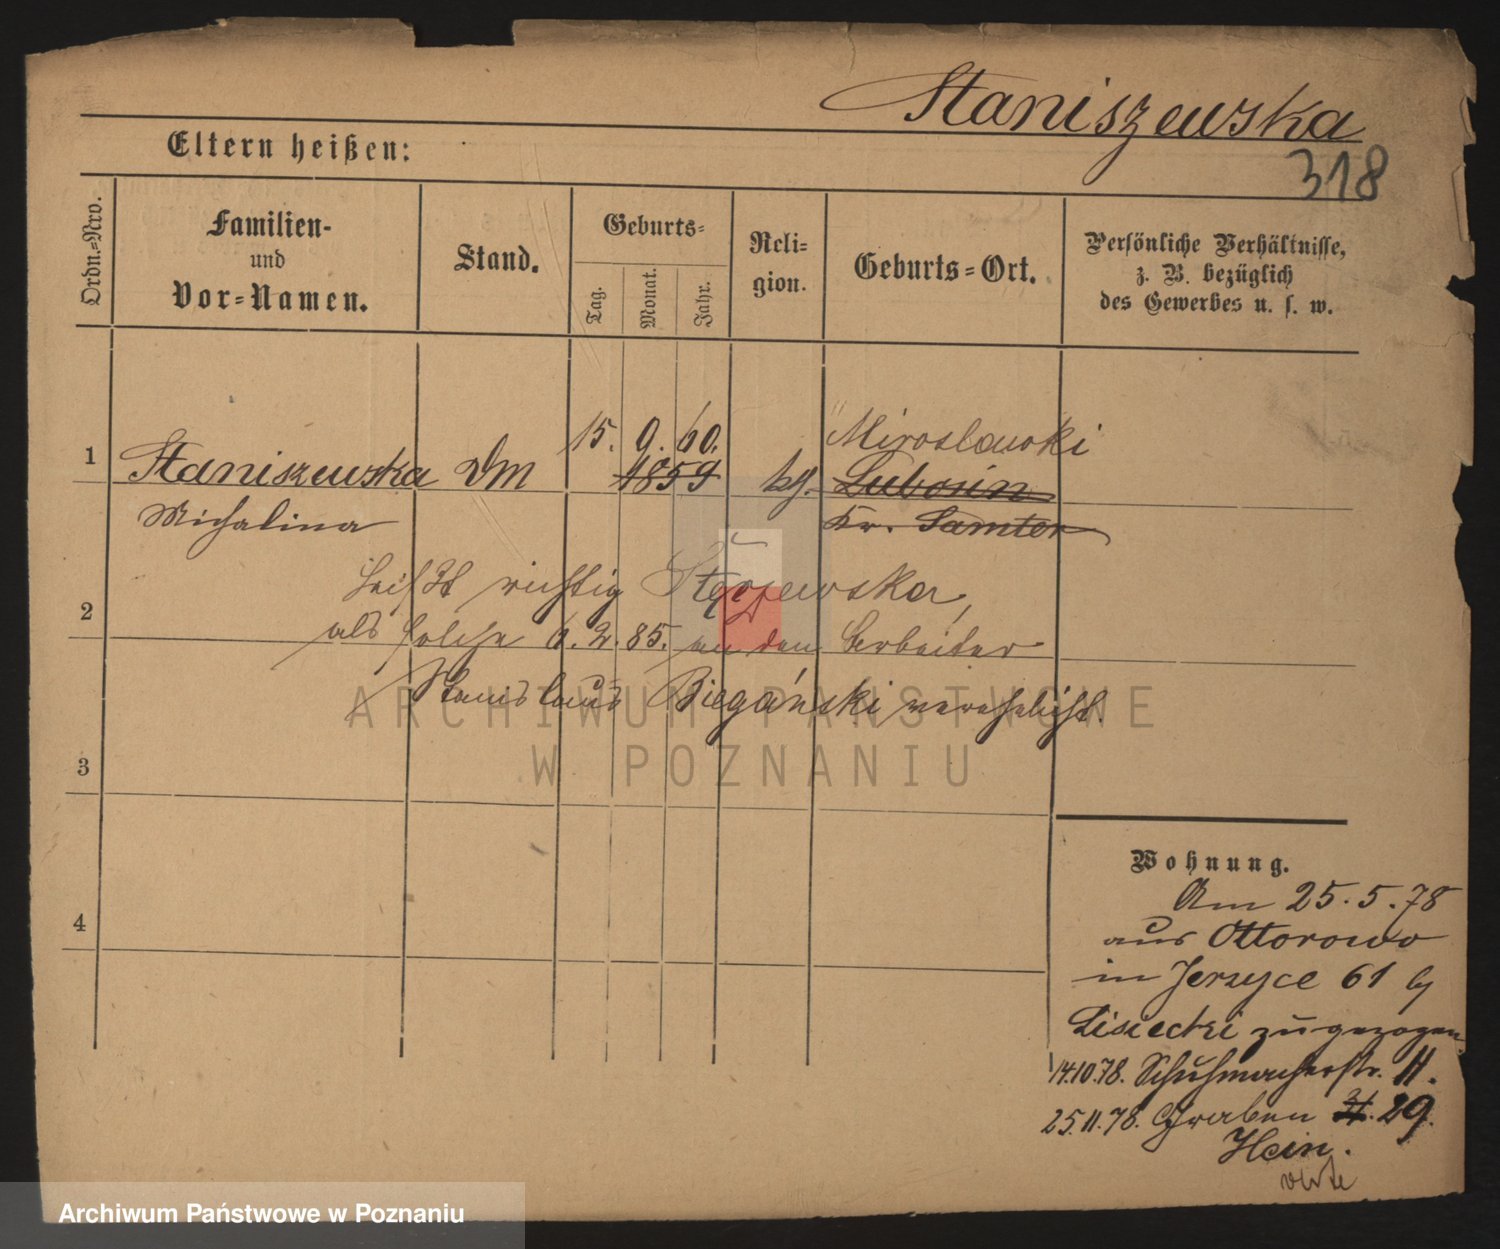 Staniszewska
318
Eltern heißen:
Ordn.=Nro.
Familien-
und
Vor=Namen.
Stand.
Geburts=
Tag.
Monat.
Jahr.
Reli=
gion.
Geburts=Ort.
Persönliche Verhältnisse,
z. B. bezüglich
des Gewerbes u. s. w.
15. 9. 60. Miroslawki
1 Staniszewska DM 1859 kg. Lubosin
Michalina Kr. Samter
heißt richtig
2
als solche 6. 2. 85. an den Arbeiter
Stanislaus Biegański verehelicht.
ARCHIWUM PAŃSTWOWE
W POZNANIU
3
4
Wohnung.
Am 25.5.78
aus Ottorowo
in Jerzyce 61 b
Lisiecki zugezogen.
14.10.78. Schuhmacherstr. 11.
25.11.78. Graben 29.
Hein.
Archiwum Państwowe w Poznaniu